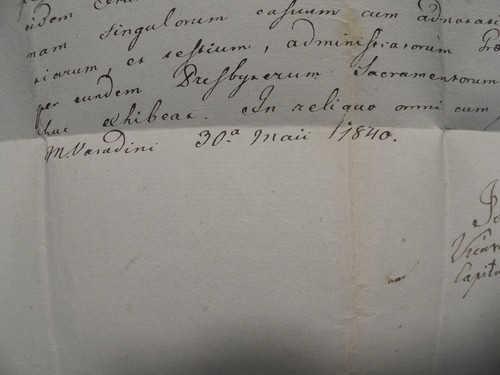 eidem
nam singulorum casuum cum adnota
riarum, et testium, administratorum
per eundem Presbyterum Sacramentorum
huc exhibeat. In reliquo omni cum
M. Varadini 30.a Maii 1840.
Capitu